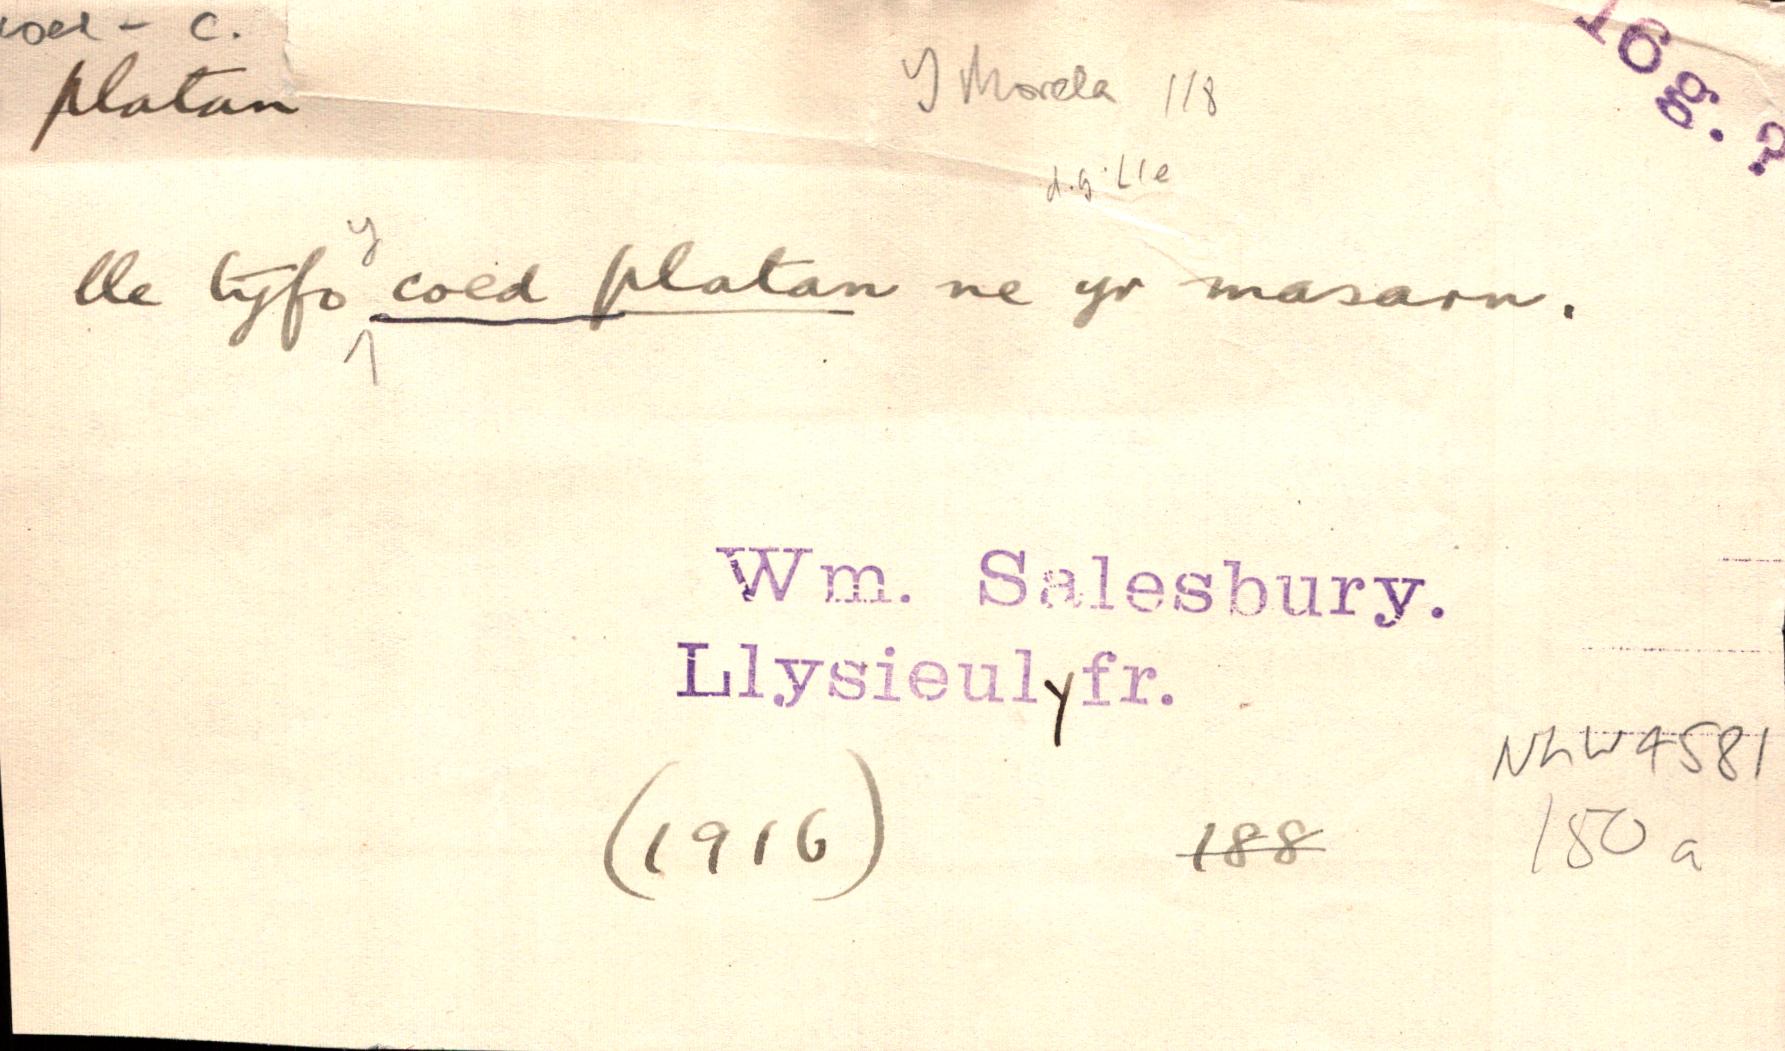 coed - c.
platan
Y Morela 118
16g.?
d.g. lle
lle tyfo y coed platan ne yr masarn.
Wm. Salesbury.
Llysieulyfr.
NLW 4581
(1916) 188 150 a